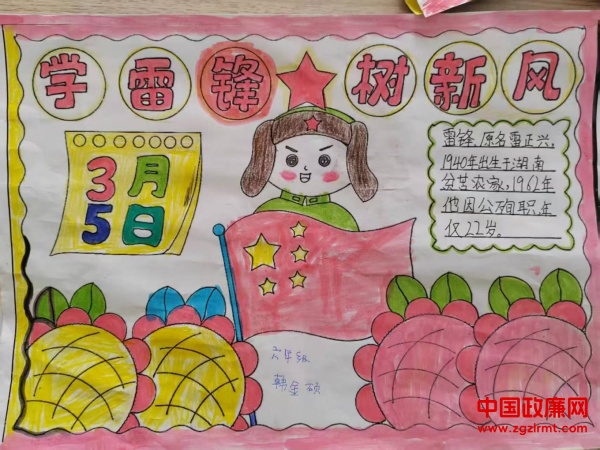 学雷锋树新风
3月
5日
雷锋,原名雷正兴,
1940年出生于湖南
贫苦农家,1962年
他因公殉职,年
仅22岁。
六年级
韩金硕
中国政廉网
www.zgzlrmt.com